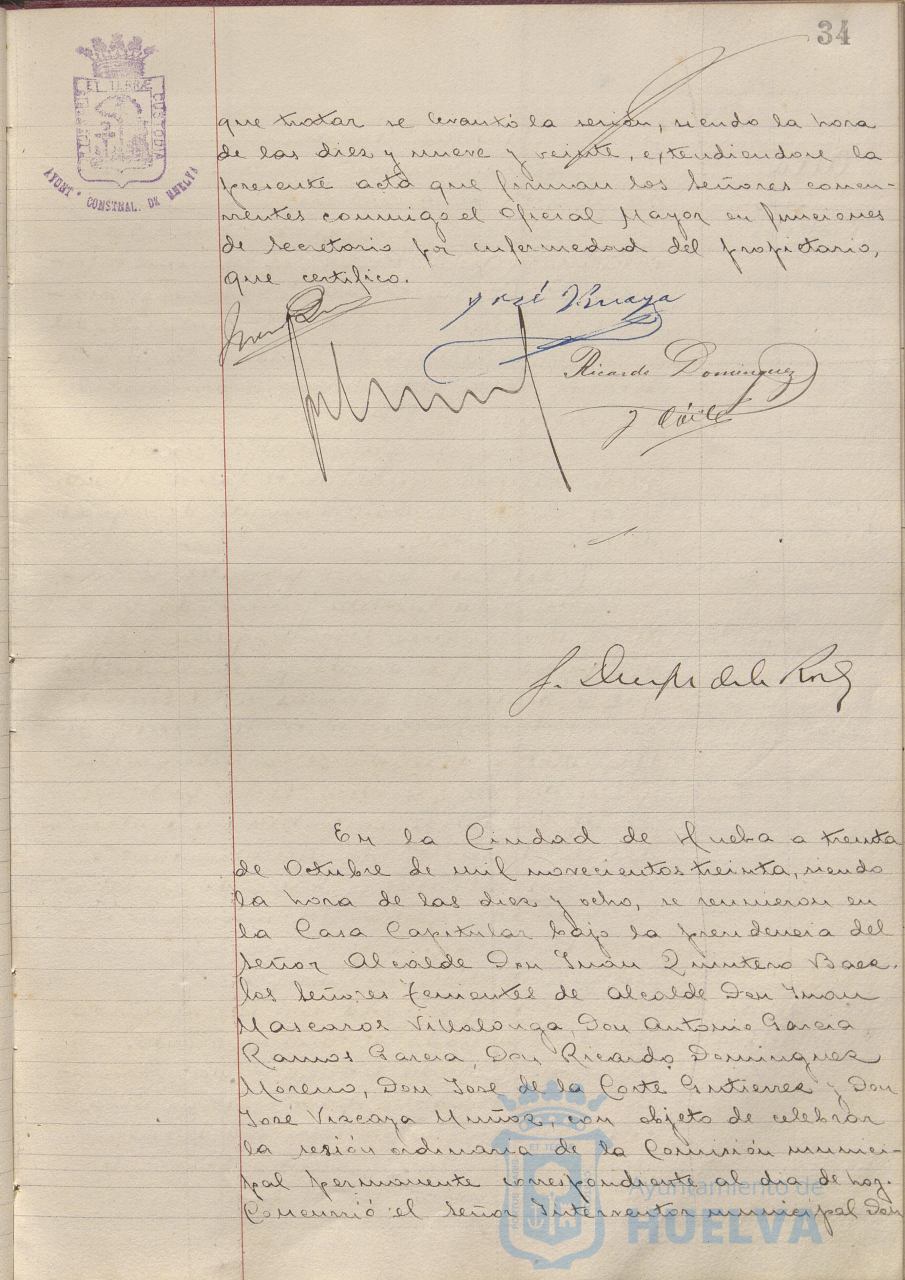 34
EL TERRAE
CUSTODIA
AYUNT. CONSTNAL. DE HUELVA
que tratar se levantó la sesión, siendo la hora
de las diez y nueve y veinte, extendiendose la
presente acta que firman los Señores concu-
rrentes conmigo el Oficial Mayor en funciones
de Secretario por enfermedad del propietario,
que certifico.
José Vizcaya
Ricardo Dominguez
En la Ciudad de Huelva a treinta
de Octubre de mil novecientos treinta, siendo
la hora de las diez y ocho, se reunieron en
la Casa Capitular bajo la presidencia del
Señor Alcalde Don Juan Quintero Baez.
los Señores Tenientes de Alcalde Don Juan
Mascaros Villalonga, Don Antonio Garcia
Ramos Garcia, Don Ricardo Dominguez
Moreno, Don José de la Corte Gutierrez y Don
José Vizcaya Muñoz, con objeto de celebrar
la sesión ordinaria de la Comisión munici-
pal permanente correspondiente al dia de hoy.
Concurrió el Señor Interventor municipal Don
Ayuntamiento de
HUELVA